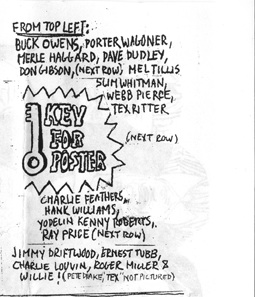 FROM TOP LEFT:
BUCK OWENS, PORTER WAGONER,
MERLE HAGGARD, DAVE DUDLEY,
DON GIBSON, (NEXT ROW) MEL TILLIS
SLIM WHITMAN,
WEBB PIERCE,
TEX RITTER
KEY
FOR
POSTER
(NEXT ROW)
CHARLIE FEATHERS,
HANK WILLIAMS,
YODELIN KENNY ROBERTS,
RAY PRICE (NEXT ROW)
JIMMY DRIFTWOOD, ERNEST TUBB,
CHARLIE LOUVIN, ROGER MILLER &
WILLIE! (PETE DRAKE, "TEX" NOT PICTURED)